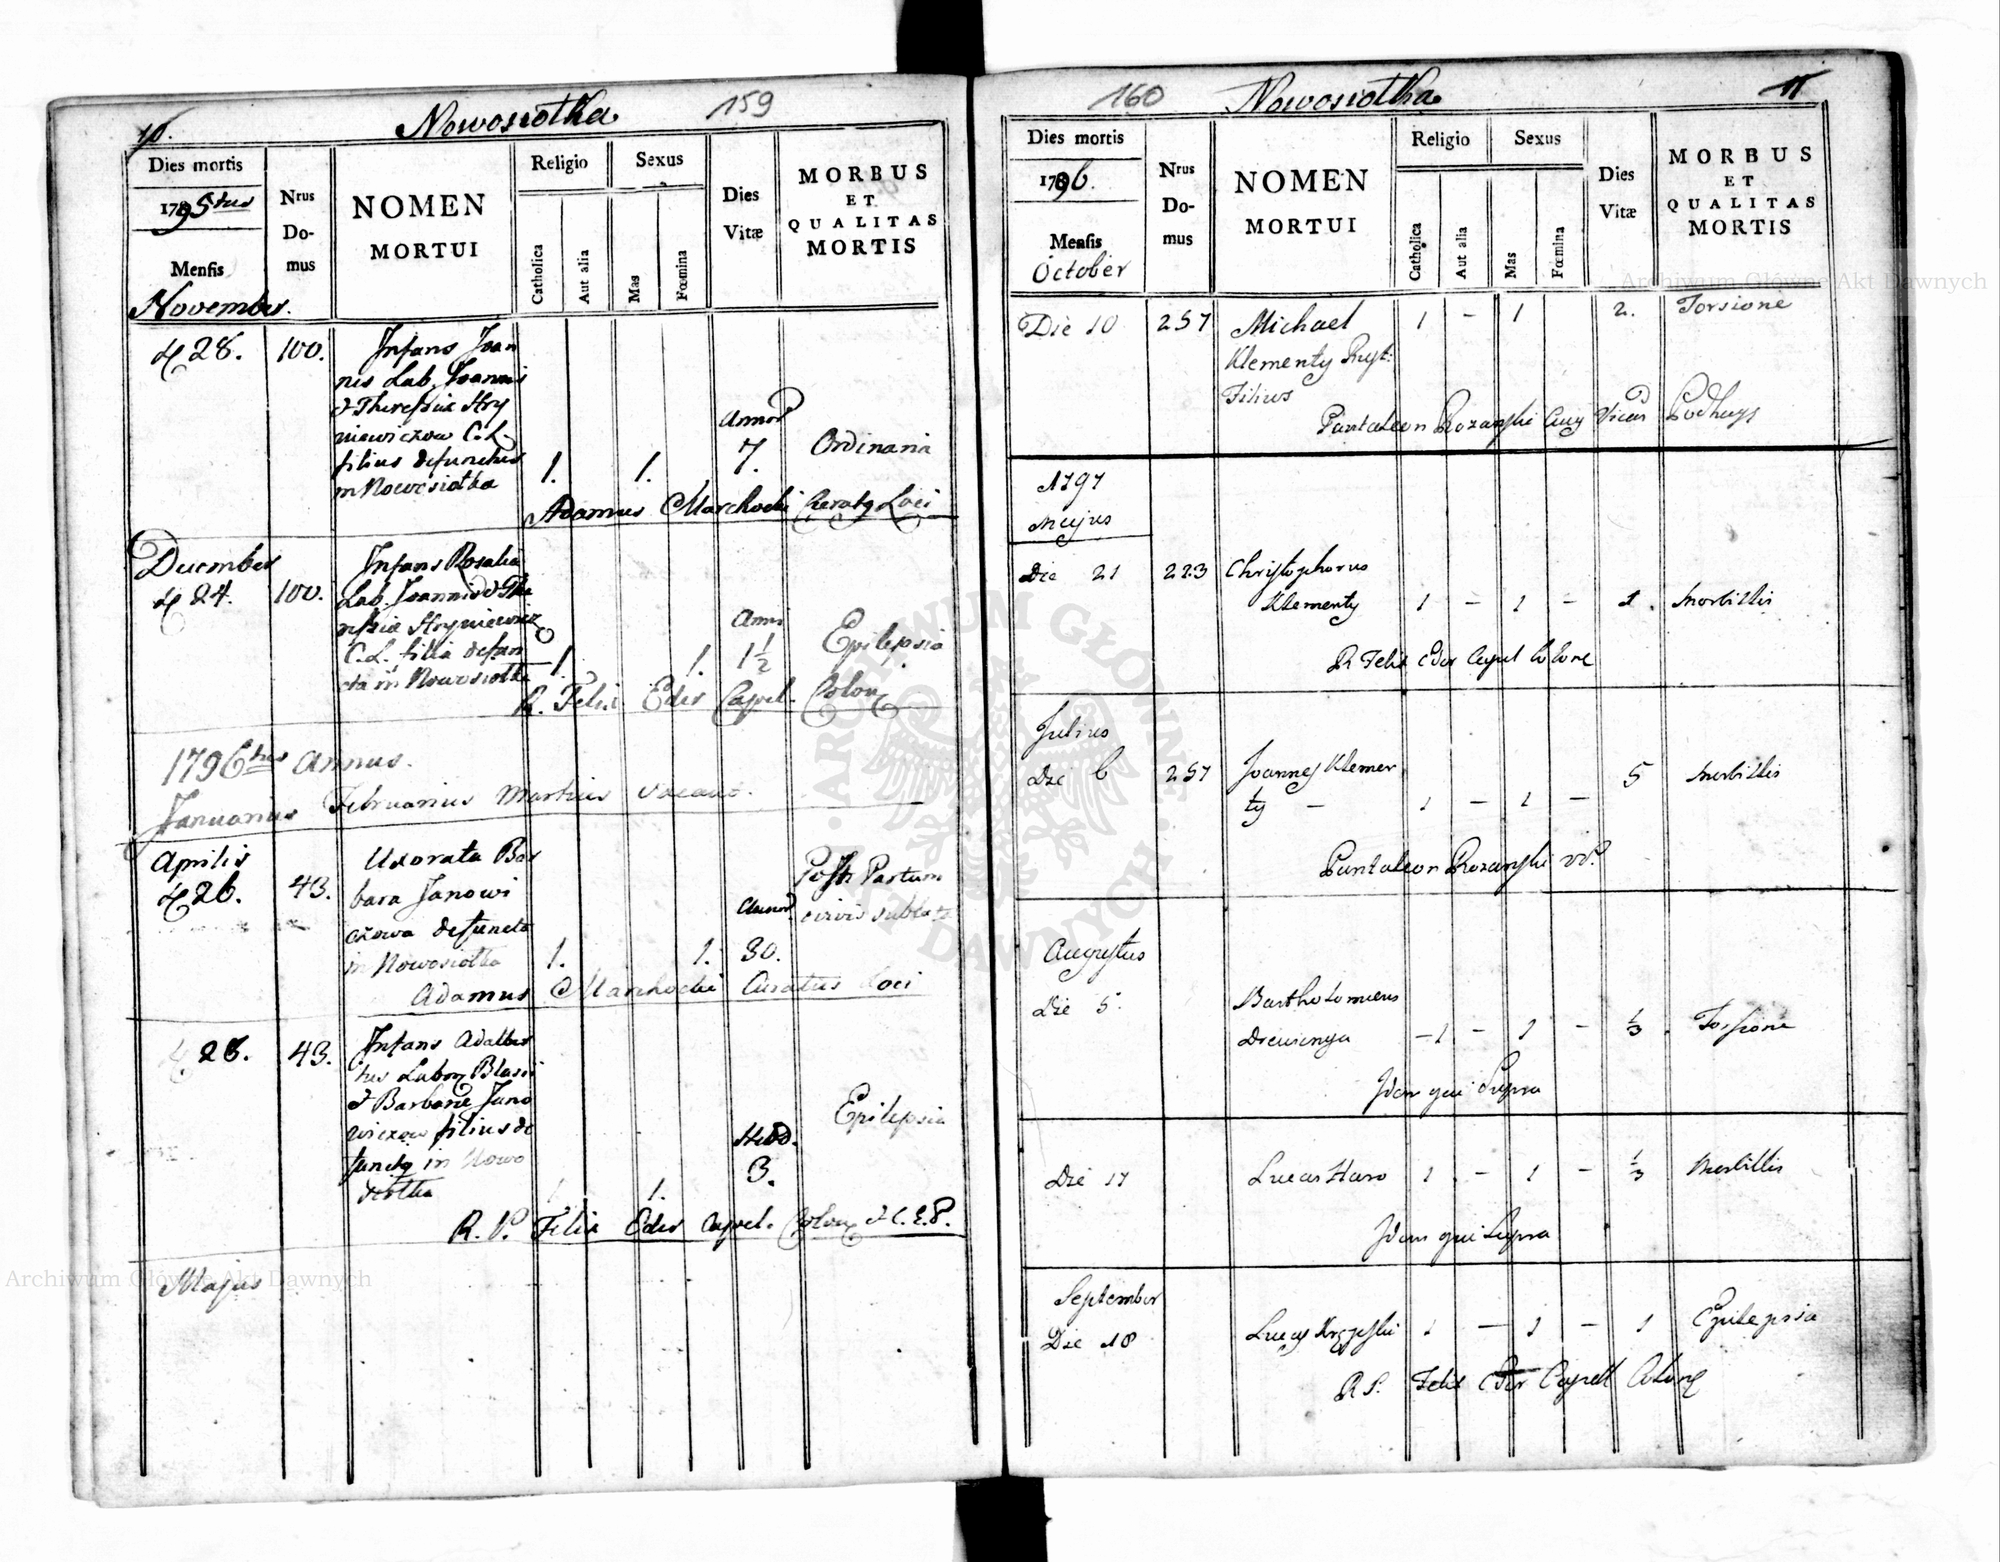 10.
Nowosiotka
159
Dies mortis
1795tus
Mensis
November.
Nrus
Do-
mus
NOMEN
MORTUI
Religio
Catholica
Aut alia
Sexus
Mas
Fœmina
Dies
Vitæ
MORBUS
ET
QUALITAS
MORTIS
28. 100. Infans Joan
nis Lab. Joannis
& Theresiæ Hry
niewiczow C.L.
filius defunctus
in Nowosiotka 1. 1. Annor 7. Ordinaria
Adamus Marchocki Curatq Loci
December
24. 100. Infans Rosalia
Lab. Joannis & The
resiæ Hryniewicz
C.L. filia defun
cta in Nowosiotka 1. 1. Anni 1 1/2 Epilepsia
R. Felix Eder Capel. Colon
1796tus Annus.
Januarius Februarius Martius vacant.
Aprilis
26. 43. Uxorata Bar
bara Janowi
czowa defuncta
in Nowosiotka 1. 1. Annor 30. Post Partum
civis sublata
Adamus Marchocki Curatus Loci
28. 43. Infans Adalber
tus Labor Blasii
& Barbaræ Jano
wiczow filius de
functq in Nowo
siotka 1. 1. Hebd. 3. Epilepsia
R. P. Felix Eder Capel. Colon & C.E.P.
Majus
160
Nowosiotka
11
Dies mortis
1796.
Mensis
October
Nrus
Do-
mus
NOMEN
MORTUI
Religio
Catholica
Aut alia
Sexus
Mas
Fœmina
Dies
Vitæ
MORBUS
ET
QUALITAS
MORTIS
Die 10 257 Michael 1 - 1 2. Torsione
Klementy
Filius
Pantaleon Rozanski Vicar Podhays
1797
Majus
Die 21 223 Christophorus
Klementy 1 - 1 - 1. Morbillis
R Felix Eder Capel Colone
Julius
Die 6 257 Joannes Klemen
ty - 1 - 1 - 5 Morbillis
Pantaleon Rozanski VP.
Augustus
Die 5. Bartholomieus
- 1 - 1 - 1/3. Torsione
Idem qui Supra
Die 17 Lucas Haro 1 - 1 - 1/3 Morbillis
Idem qui Supra
September
Die 18 Lucas 1 - 1 - 1 Epilepsia
R P. Felix Eder Capell Colone
Archiwum Główne Akt Dawnych
Archiwum Główne Akt Dawnych
ARCHIWUM GŁÓWNE AKT DAWNYCH